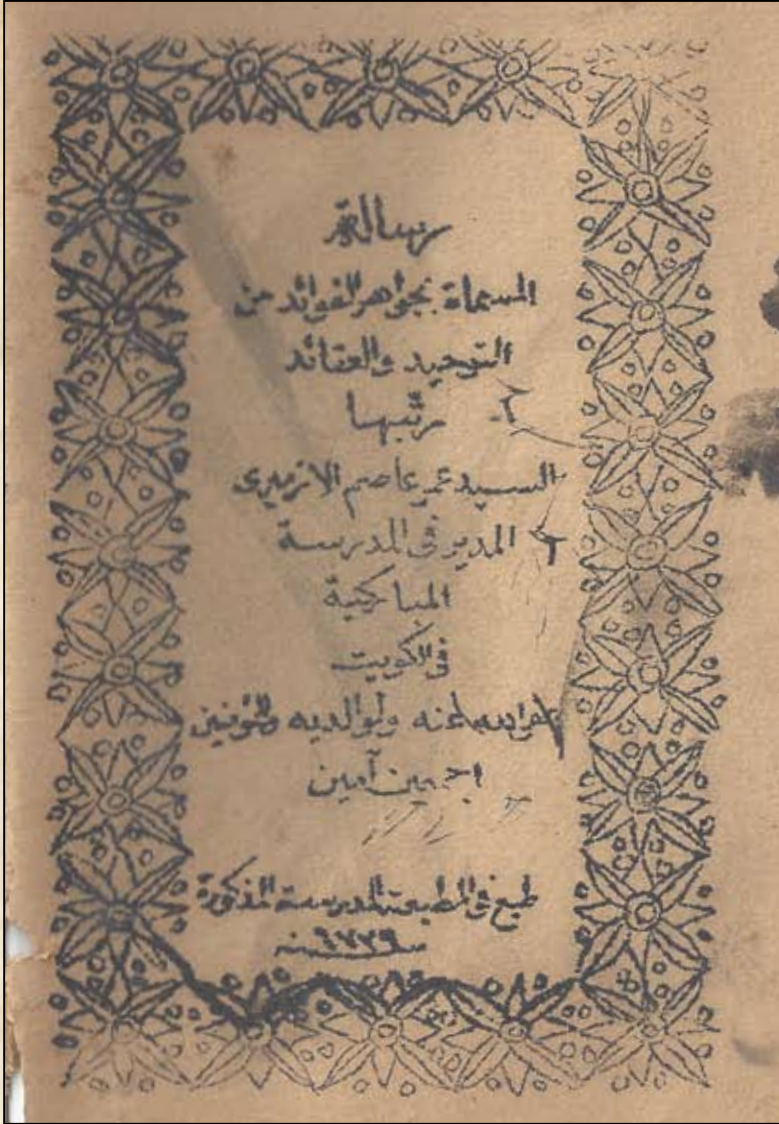 رسالة
المسماة بجواهر الفوائد من
التوحيد والعقائد
مرتبها
السيد عمر عاصم الازميرى
المدير فى المدرسة
المباركية
فى الكويت
عفى الله عنه ولوالديه وللمؤمنين
اجمعين آمين
طبع فى المطبعة المدرسة المذكورة
سنه